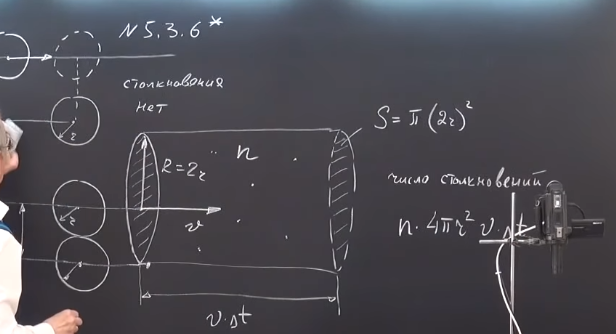 N 5.3.6*
столкновения
нет
S = π (2r)²
r
R = 2r
n
число столкновений
r
v
n · 4πr² v · Δt
v · Δt